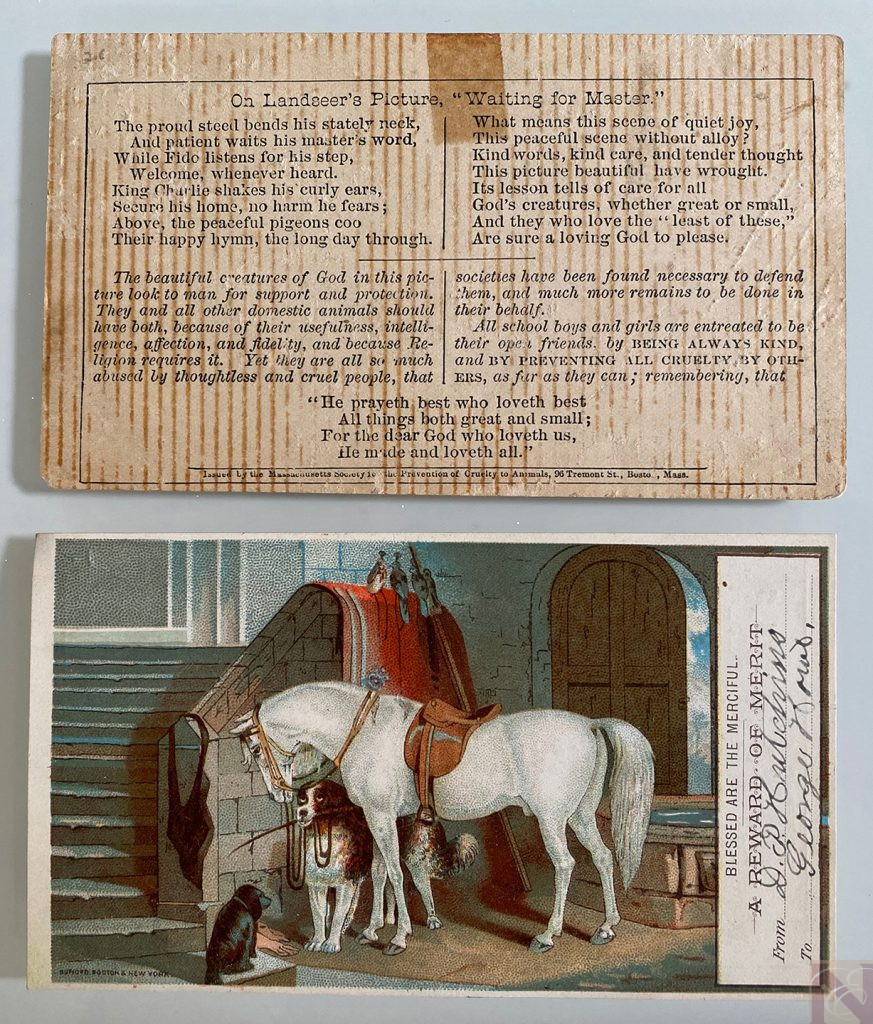 26
On Landseer's Picture, "Waiting for Master."
The proud steed bends his stately neck,
And patient waits his master's word,
While Fido listens for his step,
Welcome, whenever heard.
King Charlie shakes his curly ears,
Secure his home, no harm he fears;
Above, the peaceful pigeons coo
Their happy hymn, the long day through.
What means this scene of quiet joy,
This peaceful scene without alloy?
Kind words, kind care, and tender thought
This picture beautiful have wrought.
Its lesson tells of care for all
God's creatures, whether great or small,
And they who love the "least of these,"
Are sure a loving God to please.
The beautiful creatures of God in this pic-
ture look to man for support and protection.
They and all other domestic animals should
have both, because of their usefulness, intelli-
gence, affection, and fidelity, and because Re-
ligion requires it. Yet they are all so much
abused by thoughtless and cruel people, that
societies have been found necessary to defend
them, and much more remains to be done in
their behalf.
All school boys and girls are entreated to be
their open friends, by BEING ALWAYS KIND,
and BY PREVENTING ALL CRUELTY BY OTH-
ERS, as far as they can; remembering, that
"He prayeth best who loveth best
All things both great and small;
For the dear God who loveth us,
He made and loveth all."
Issued by the Massachusetts Society for the Prevention of Cruelty to Animals, 96 Tremont St., Boston, Mass.
BLESSED ARE THE MERCIFUL.
A REWARD OF MERIT
From D. P. Hutchins
To George
BUFFORD, BOSTON & NEW YORK